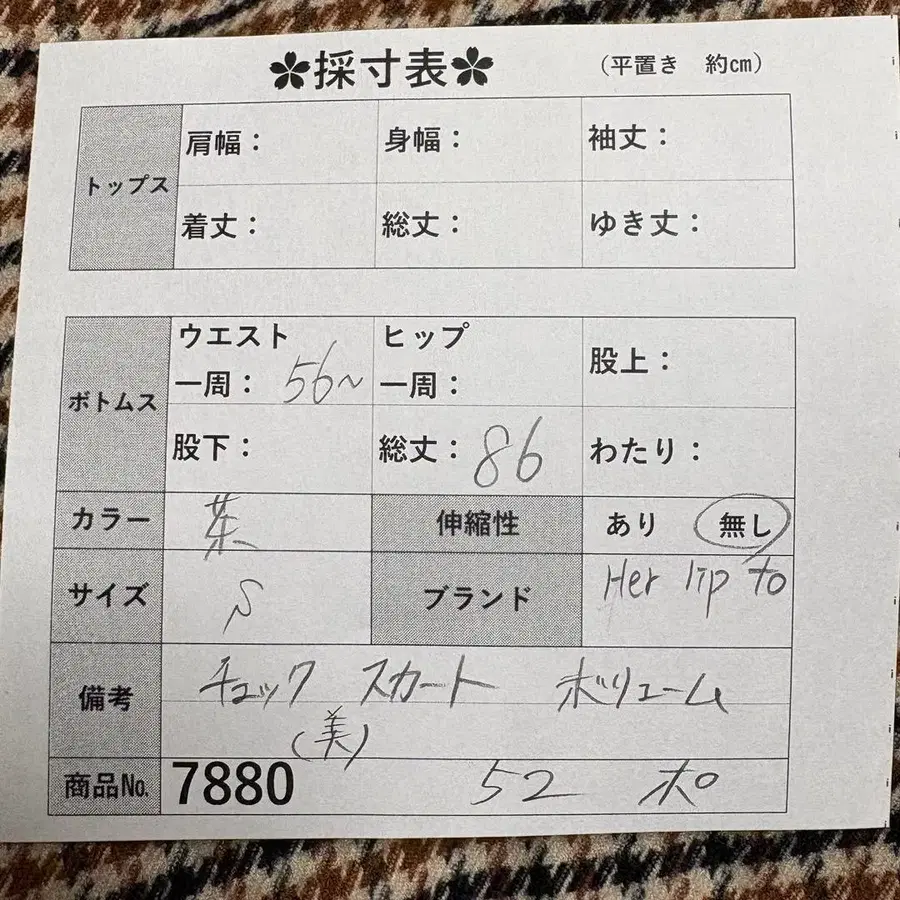 ✽採寸表✽ （平置き 約㎝）
トップス 肩幅： 身幅： 袖丈：
着丈： 総丈： ゆき丈：
ボトムス ウエスト一周：56〜 ヒップ一周： 股上：
股下： 総丈：86 わたり：
カラー 茶 伸縮性 あり 無し
サイズ S ブランド Her lip to
備考 チェック スカート ボリューム
(美)
商品№. 7880 52 ポ